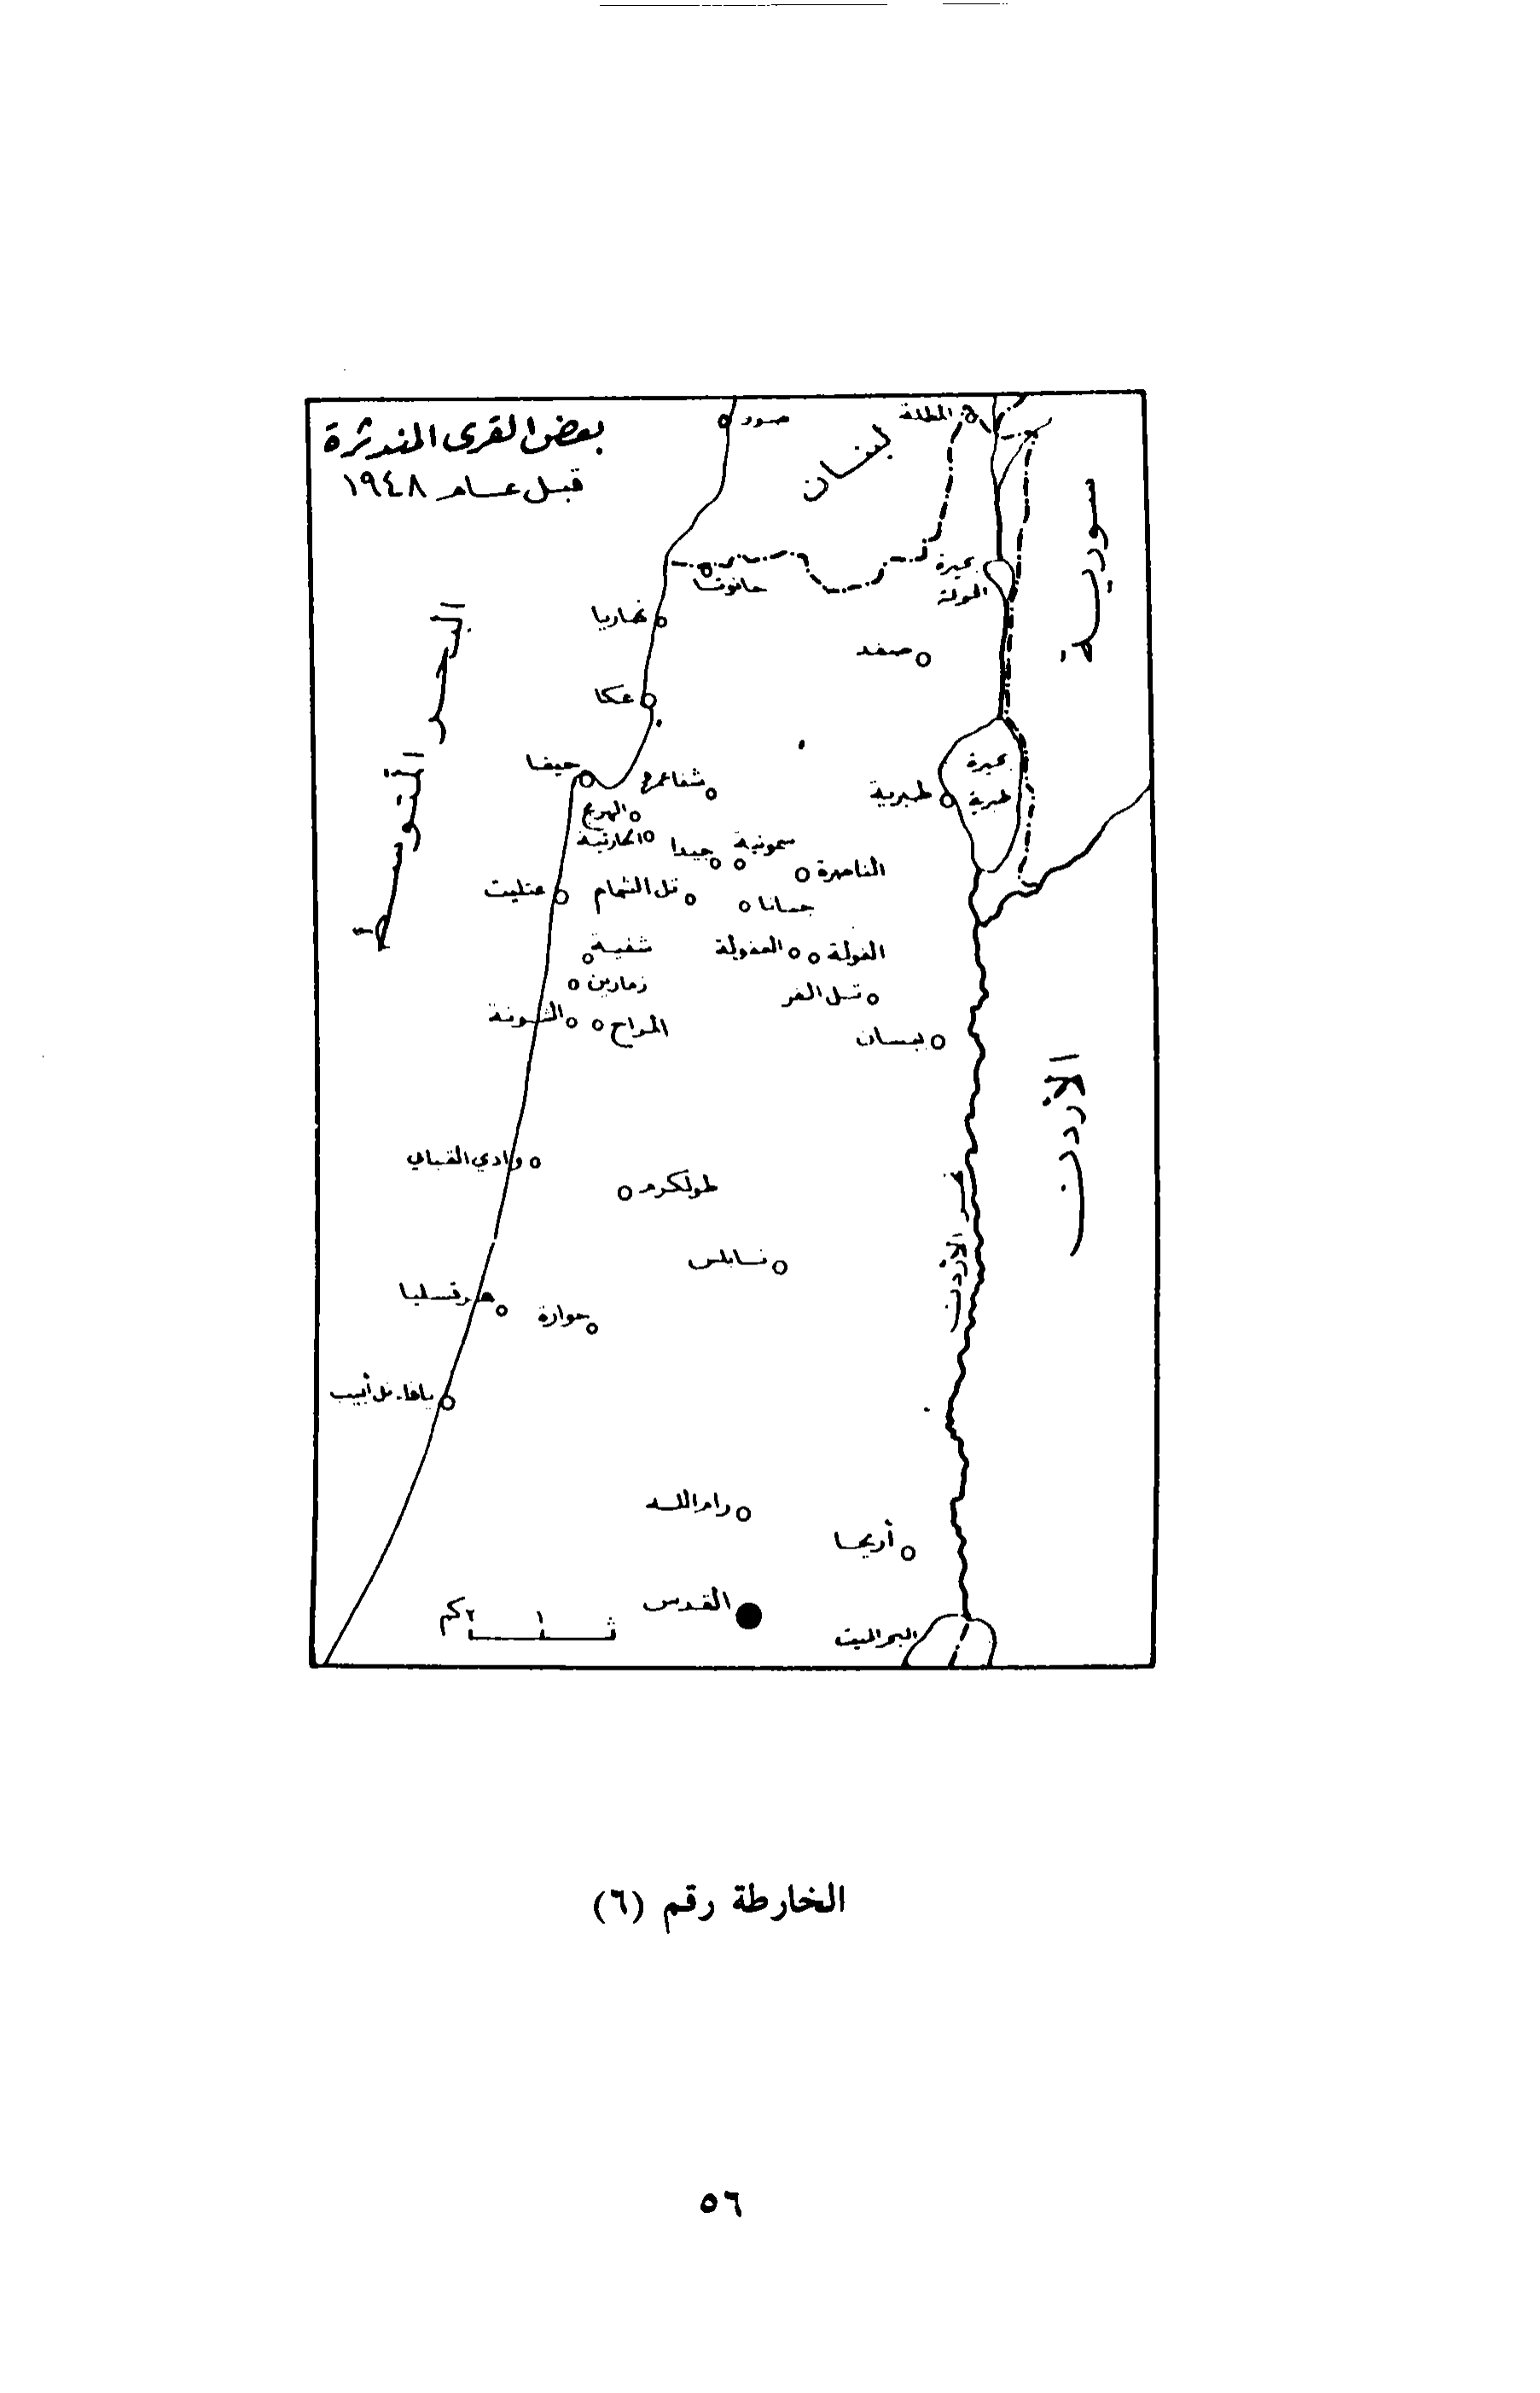 بعض القرى المندثرة
قبل عام ١٩٤٨
صور
المطلة
لبنان
سورية
بحيرة
الحولة
حانوتا
نهاريا
صفد
عكا
البحر المتوسط
حيفا
شفاعمرو
بحيرة
طبرية
طبرية
الهربج
الحارثية
جيدا
سمونية
الناصرة
عتليت
تل الشمام
جباتا
شفية
العفولة
الفولة
زمارين
تل الفر
الشونة
المراح
بيسان
الأردن
وادي القباني
طولكرم
نهر الأردن
نابلس
حوارة
يافا. تل أبيب
رام الله
أريحا
القدس
البحر الميت
٢كم
١
الخارطة رقم (٦)
٥٦